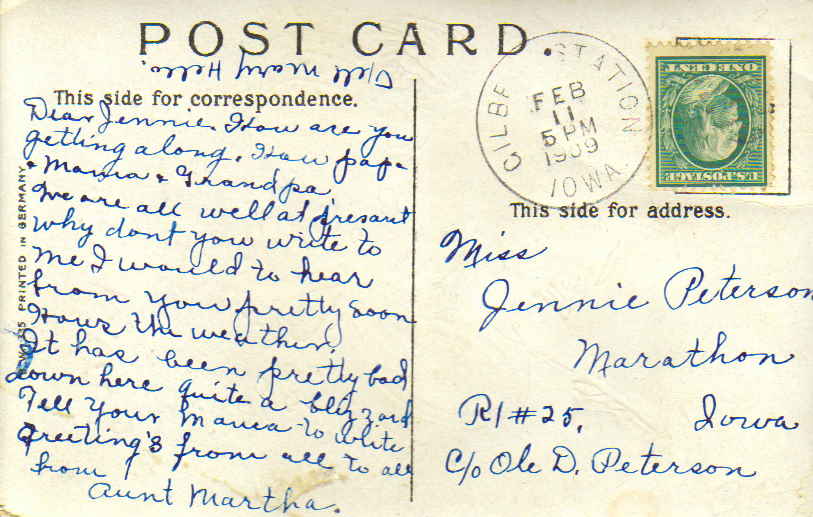 POST CARD.
Tell Mary Hello.
This side for correspondence.
Dear Jennie. How are you
getting along. How papa
& Mama & Grandpa
We are all well at presant
why dont you write to
me I would to hear
from you pretty soon
Hows the weather,
It has been pretty bad
down here quite a blizzard
Tell your Mama to write
Greeting's from all to all
from
Aunt Martha.
PRINTED IN GERMANY
GILBE STATION
FEB
11
5 PM
1909
IOWA
U.S. POSTAGE
ONE CENT
This side for address.
Miss
Jennie Peterson
Marathon
R1 #25. Iowa
c/o Ole D. Peterson